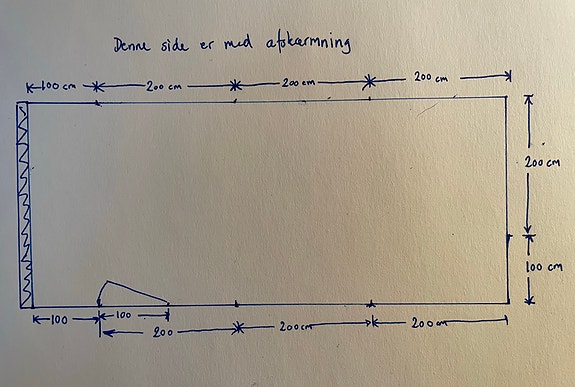 Denne side er med afskærmning
100 cm 200 cm 200 cm 200 cm
200 cm
100 cm
100 100
200 200 cm 200 cm